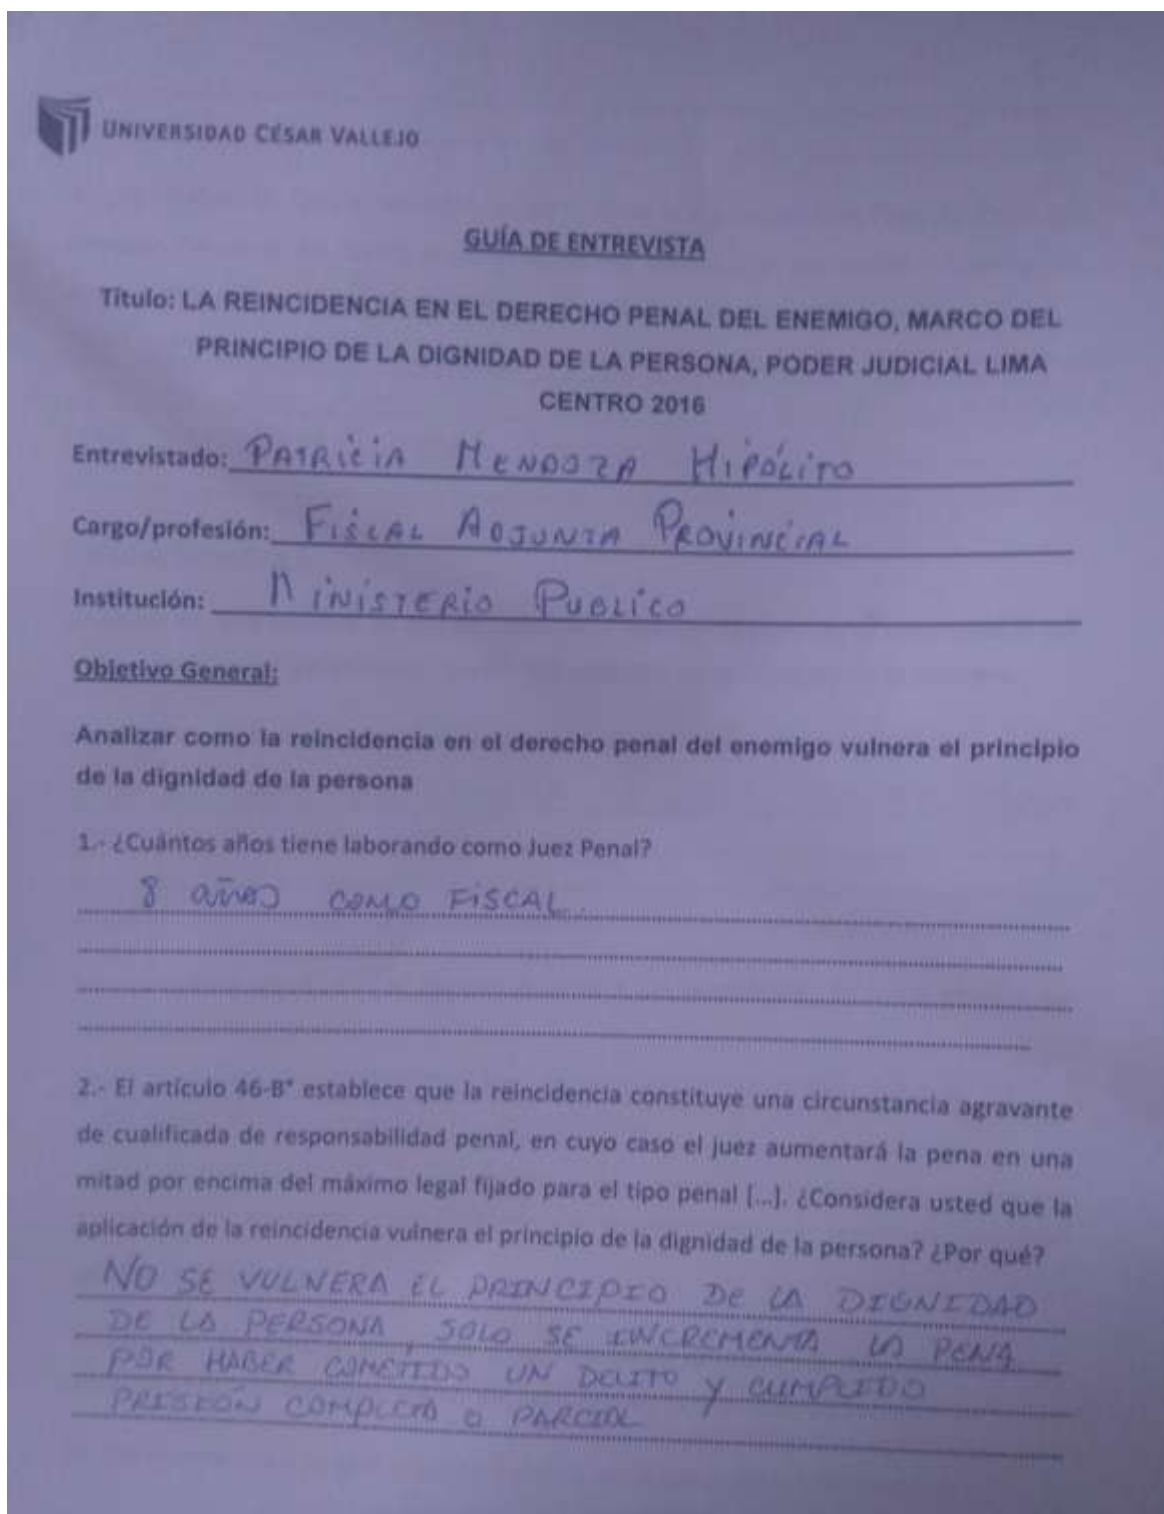 UNIVERSIDAD CÉSAR VALLEJO
GUÍA DE ENTREVISTA
Título: LA REINCIDENCIA EN EL DERECHO PENAL DEL ENEMIGO, MARCO DEL
PRINCIPIO DE LA DIGNIDAD DE LA PERSONA, PODER JUDICIAL LIMA
CENTRO 2016
Entrevistado: PATRICIA MENDOZA HIPÓLITO
Cargo/profesión: FISCAL ADJUNTA PROVINCIAL
Institución: MINISTERIO PUBLICO
Objetivo General:
Analizar como la reincidencia en el derecho penal del enemigo vulnera el principio
de la dignidad de la persona
1.- ¿Cuántos años tiene laborando como Juez Penal?
8 años COMO FISCAL.
2.- El artículo 46-B° establece que la reincidencia constituye una circunstancia agravante
de cualificada de responsabilidad penal, en cuyo caso el juez aumentará la pena en una
mitad por encima del máximo legal fijado para el tipo penal [...]. ¿Considera usted que la
aplicación de la reincidencia vulnera el principio de la dignidad de la persona? ¿Por qué?
NO SE VULNERA EL PRINCIPIO DE LA DIGNIDAD
DE LA PERSONA, SOLO SE INCREMENTA LA PENA
POR HABER COMETIDO UN DELITO Y CUMPLIDO
PRISIÓN COMPLETA O PARCIAL